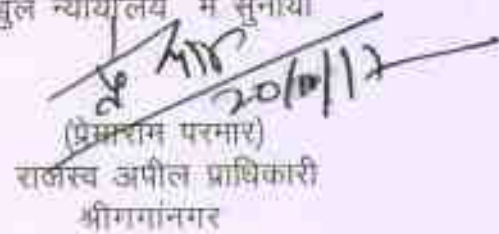 खुले न्यायालय में सुनाया
20/10/17
(प्रेमाराम परमार)
राजस्व अपील प्राधिकारी
श्रीगगांनगर